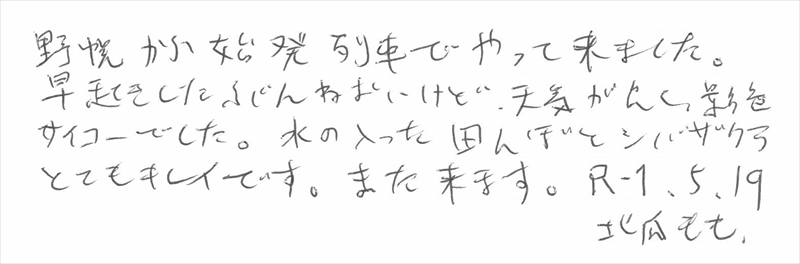 野幌から始発列車でやって来ました。
早起きしたぶんねむいけど、天気が良く、景色
サイコーでした。水の入った田んぼとシバザクラ
とてもキレイです。また来ます。R-1.5.19
北瓜もも.